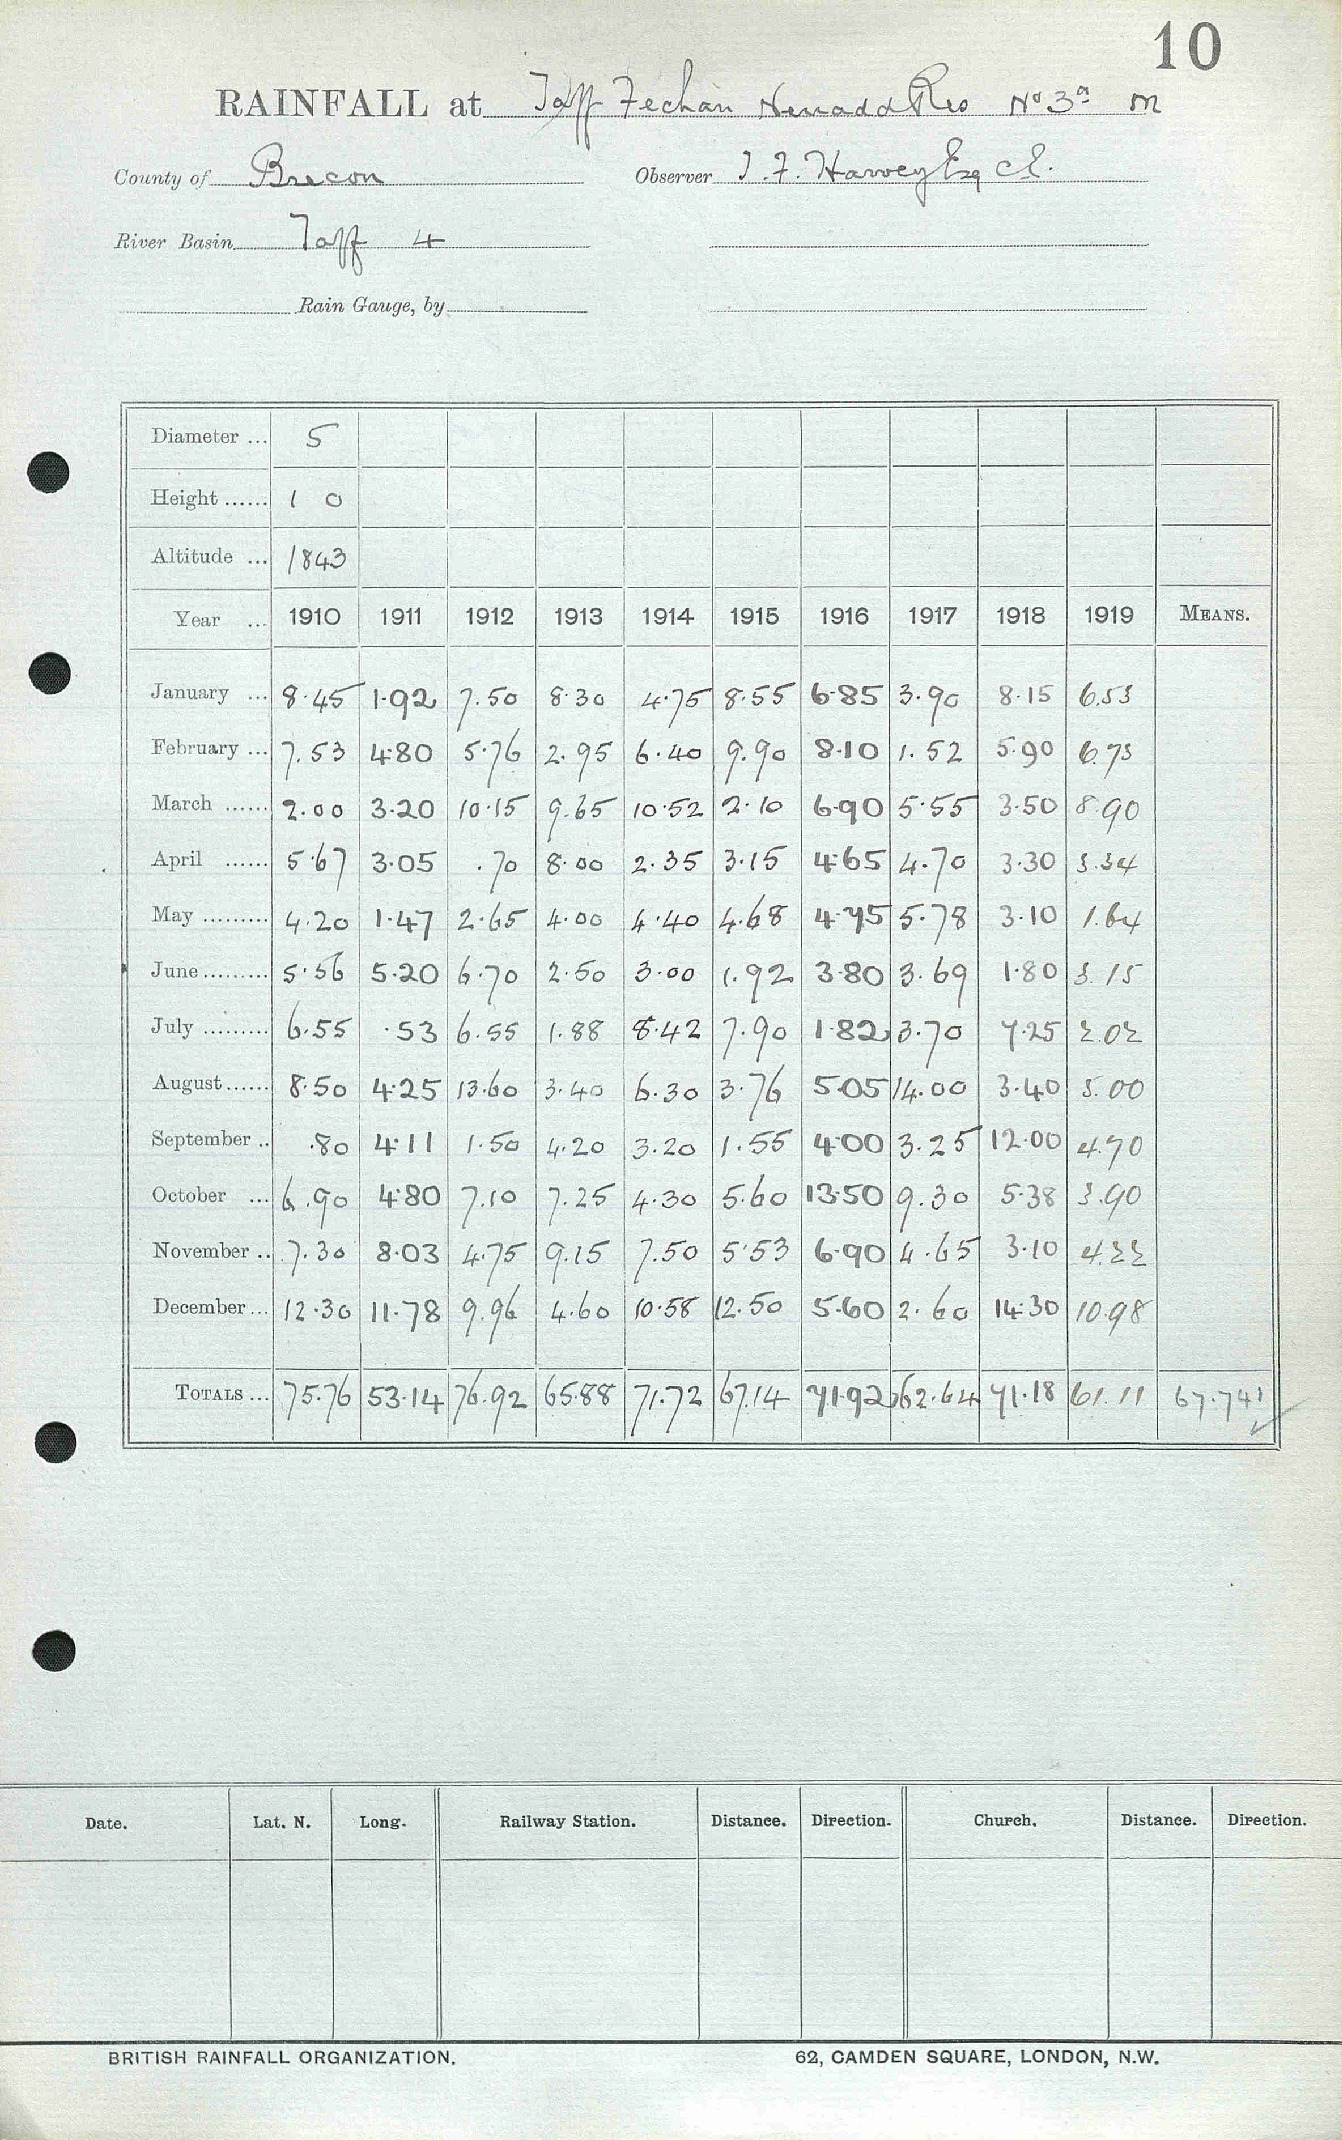 10
RAINFALL at Taff Fechan Neuadd Res No 3a m
County of Brecon Observer T. F. Harvey Esq C.E.
River Basin Taff 4
Rain Gauge, by
Diameter ... 5
Height ...... 1 0
Altitude ... 1843
Year ... 1910 1911 1912 1913 1914 1915 1916 1917 1918 1919 MEANS.
January ... 8.45 1.92 7.50 8.30 4.75 8.55 6.85 3.90 8.15 6.53
February ... 7.53 4.80 5.76 2.95 6.40 9.90 8.10 1.52 5.90 6.73
March ...... 2.00 3.20 10.15 9.65 10.52 2.10 6.90 5.55 3.50 8.90
April ...... 5.67 3.05 .70 8.00 2.35 3.15 4.65 4.70 3.30 3.34
May ......... 4.20 1.47 2.65 4.00 4.40 4.68 4.75 5.78 3.10 1.64
June ......... 5.56 5.20 6.70 2.50 3.00 1.92 3.80 3.69 1.80 3.15
July ......... 6.55 .53 6.55 1.88 8.42 7.90 1.82 3.70 7.25 2.02
August ...... 8.50 4.25 13.60 3.40 6.30 3.76 5.05 14.00 3.40 5.00
September .. .80 4.11 1.50 4.20 3.20 1.55 4.00 3.25 12.00 4.70
October ... 6.90 4.80 7.10 7.25 4.30 5.60 13.50 9.30 5.38 3.90
November .. 7.30 8.03 4.75 9.15 7.50 5.53 6.90 4.65 3.10 4.22
December ... 12.30 11.78 9.96 4.60 10.58 12.50 5.60 2.60 14.30 10.98
TOTALS ... 75.76 53.14 76.92 65.88 71.72 67.14 71.92 62.64 71.18 61.11 67.741
Date. Lat. N. Long. Railway Station. Distance. Direction. Church. Distance. Direction.
BRITISH RAINFALL ORGANIZATION. 62, CAMDEN SQUARE, LONDON, N.W.